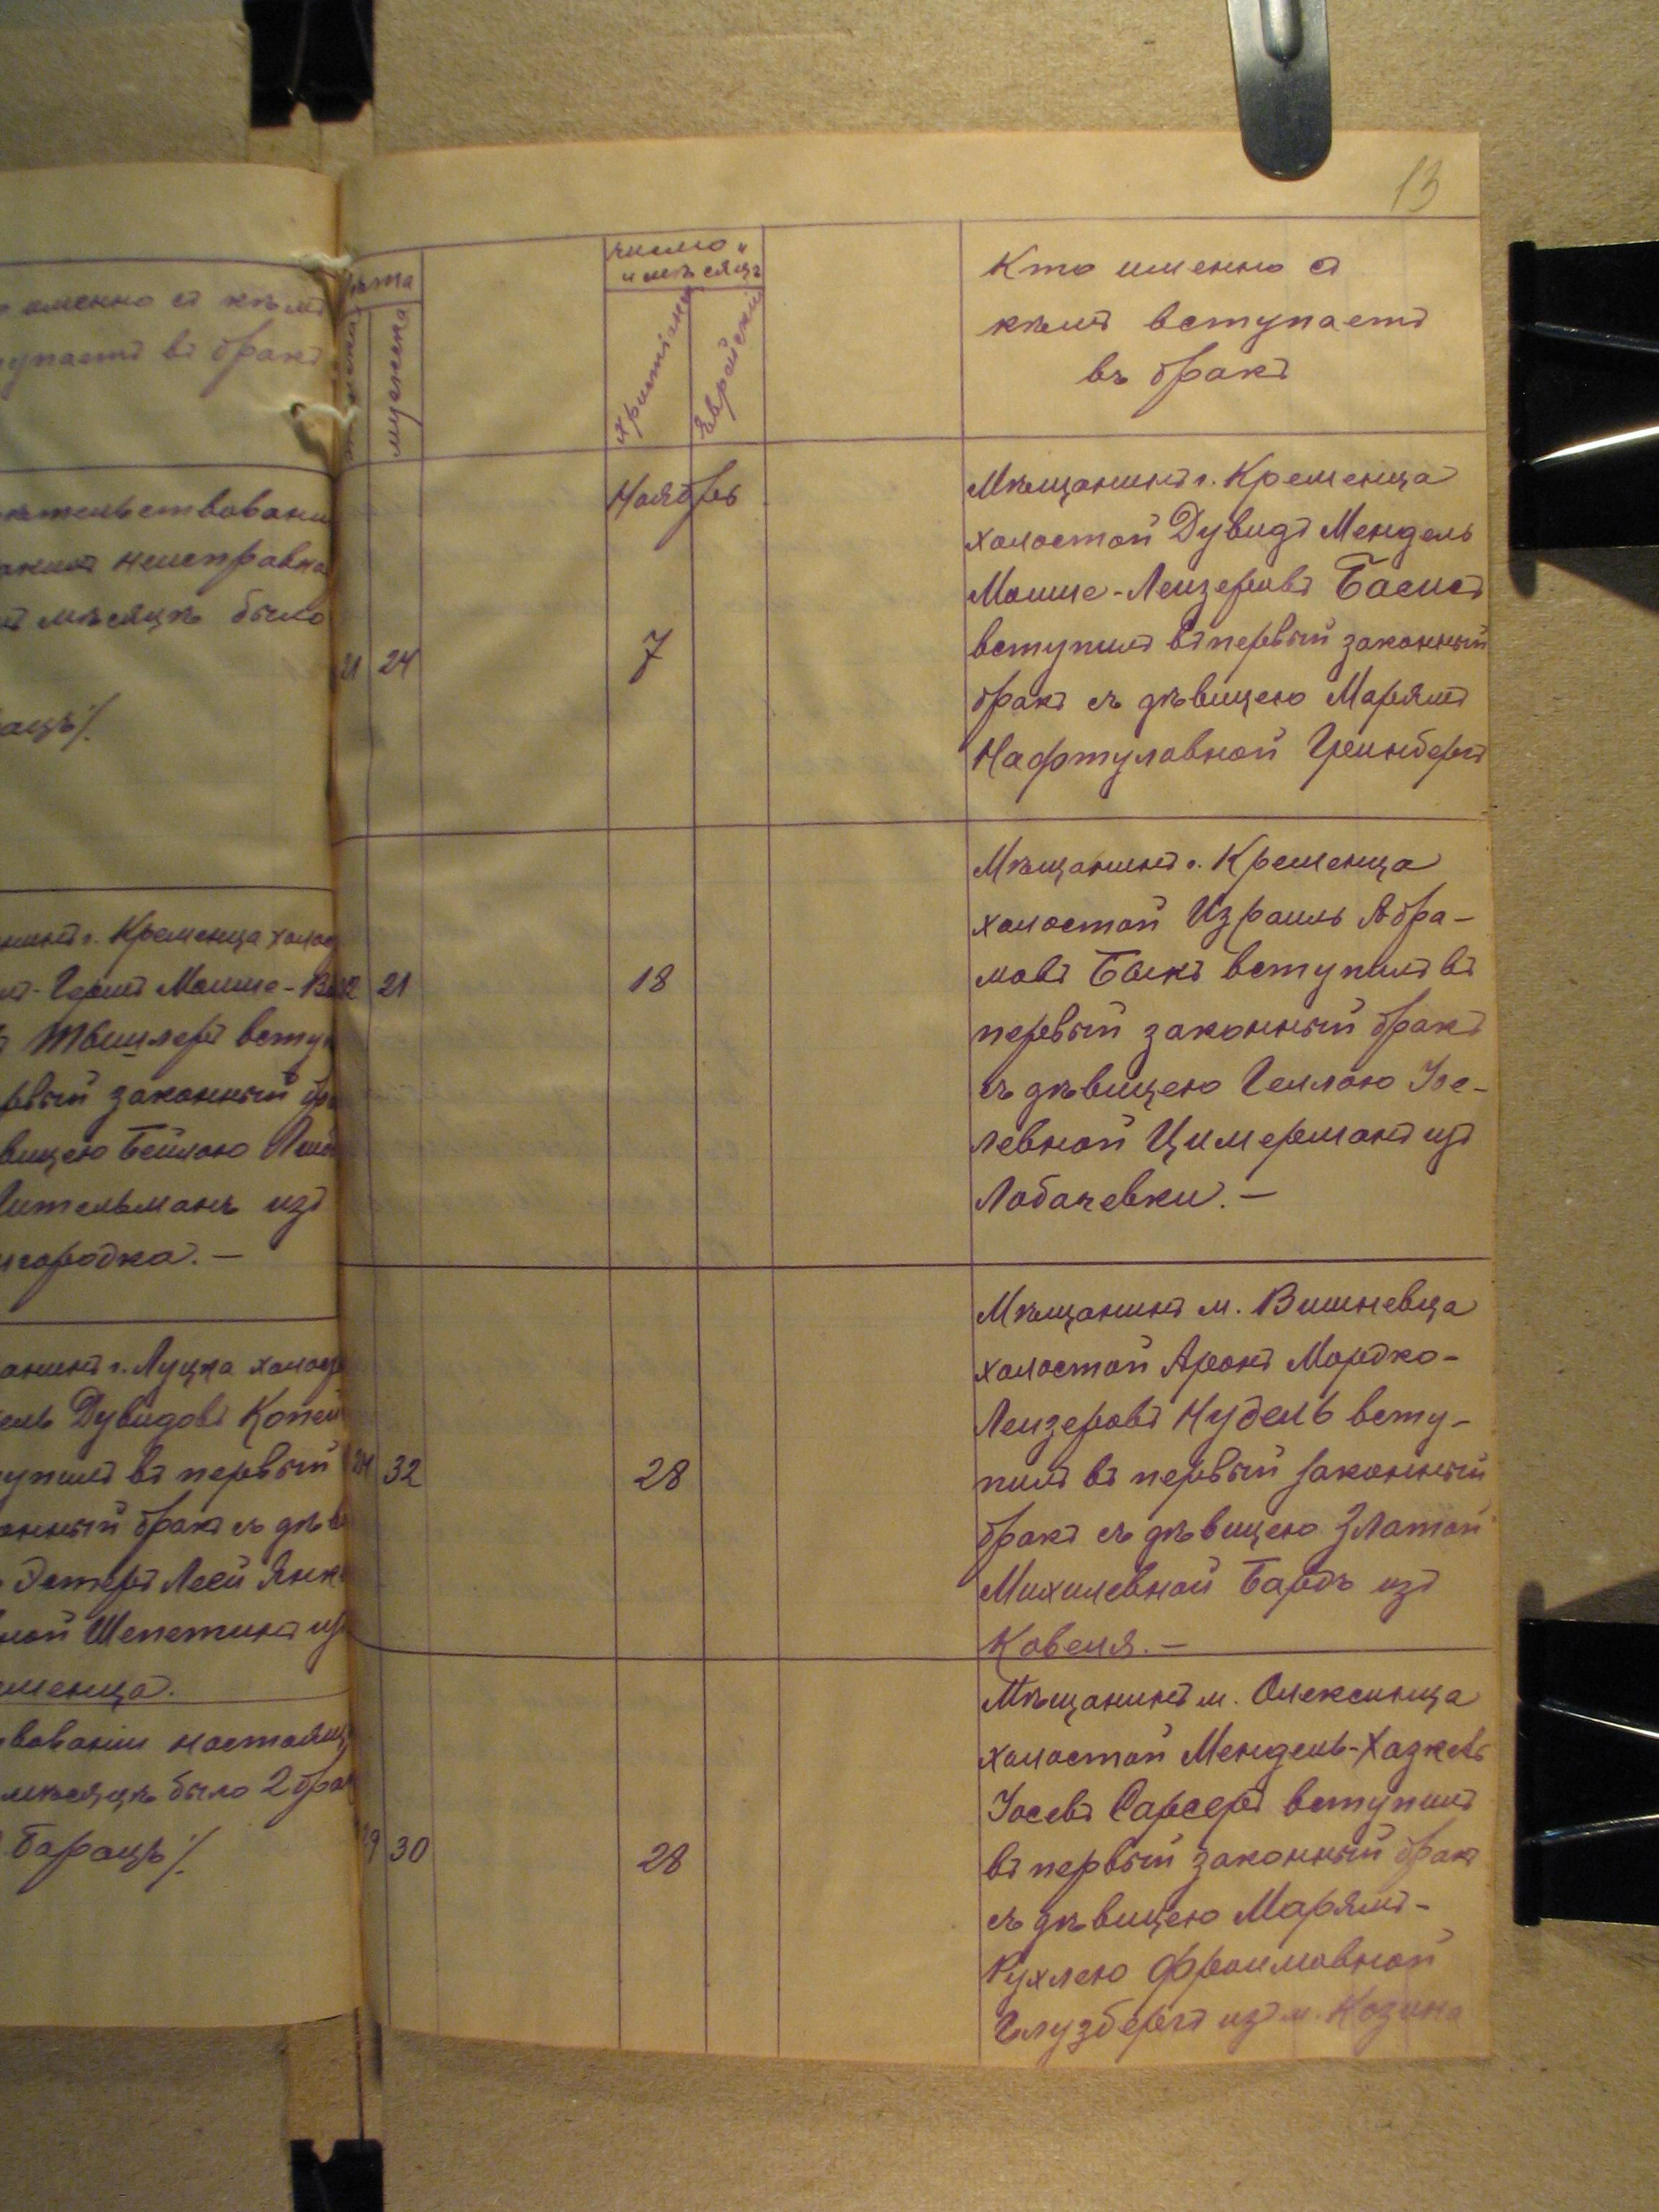 13
о именно съ кѣмъ
тупаетъ въ бракъ
ѣтельствовани
мѣсяцѣ было
инъ г. Кременца холос
Мошше-В
вступ
рвый законный бр
вицею Бейлою
Ительманъ изъ
городка. —
анинъ г. Луцка холос
ель Дувидовъ Копей
упилъ въ первый
онный бракъ съ дѣв
Эстеръ Леей Янк
ной Шепетинъ из
еменца.
вовании настоящ
мѣсяцѣ было 2 бра
ѣта
женска
мужеска
число
и мѣсяцъ
Христіанск
Еврейскій
Кто именно съ
кѣмъ вступаетъ
въ бракъ
Ноябрь
21 24
7
Мѣщанинъ г. Кременца
холостой Дувидъ Мендель
Мошше-Лейзеровъ Басисъ
вступилъ въ первый законный
бракъ съ дѣвицею Марямъ
Нафтуловной Гринбергъ
22 21
18
Мѣщанинъ г. Кременца
холостой Израиль Абра-
мовъ Быкъ вступилъ въ
первый законный бракъ
съ дѣвицею Геллою Іое-
левной Цимерманъ изъ
Лобачевки. —
24 32
28
Мѣщанинъ м. Вишневца
холостой Аронъ Мордко-
Лейзеровъ Нудель всту-
пилъ въ первый законный
бракъ съ дѣвицею Златой
Михилевной Бардъ изъ
Ковеля. —
29 30
28
Мѣщанинъ м. Олексинца
холостой Мендель-Хаскель
Іосевъ Сарсеръ вступилъ
въ первый законный бракъ
съ дѣвицею Марямъ-
Рухлею Фроимовной
Глузбергъ изъ м. Козина